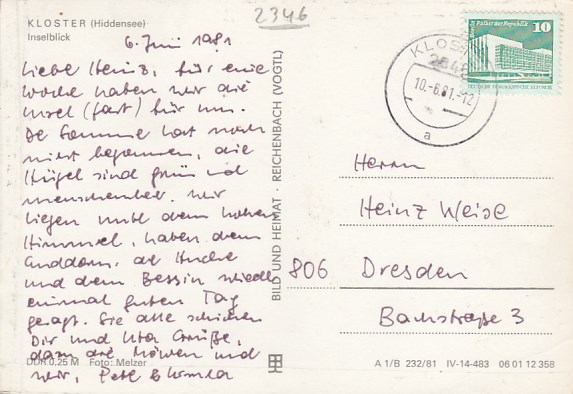 2346
KLOSTER (Hiddensee)
Inselblick
6. Juni 1981
Liebe Heinz, für eine
Woche haben wir die
Insel (fast) für uns.
De Sommer hat noch
nicht begonnen, die
Hügel sind grün und
menschenleer. Wir
liegen unter dem hohen
Himmel, haben dem
und dem Bessin wieder
einmal guten Tag
gesagt. Sie alle schicken
Dir und Uta Grüße,
dazu die Möwen und
wir,
DDR 0,25 M Foto: Melzer
BILD UND HEIMAT · REICHENBACH (VOGTL)
Berlin Palast der Republik
10
DEUTSCHE DEMOKRATISCHE REPUBLIK
KLOSTER
2346
10.-6.81.-12
a
Herrn
Heinz Weise
806 Dresden
Bachstraße 3
A 1/B 232/81 IV-14-483 06 01 12 358